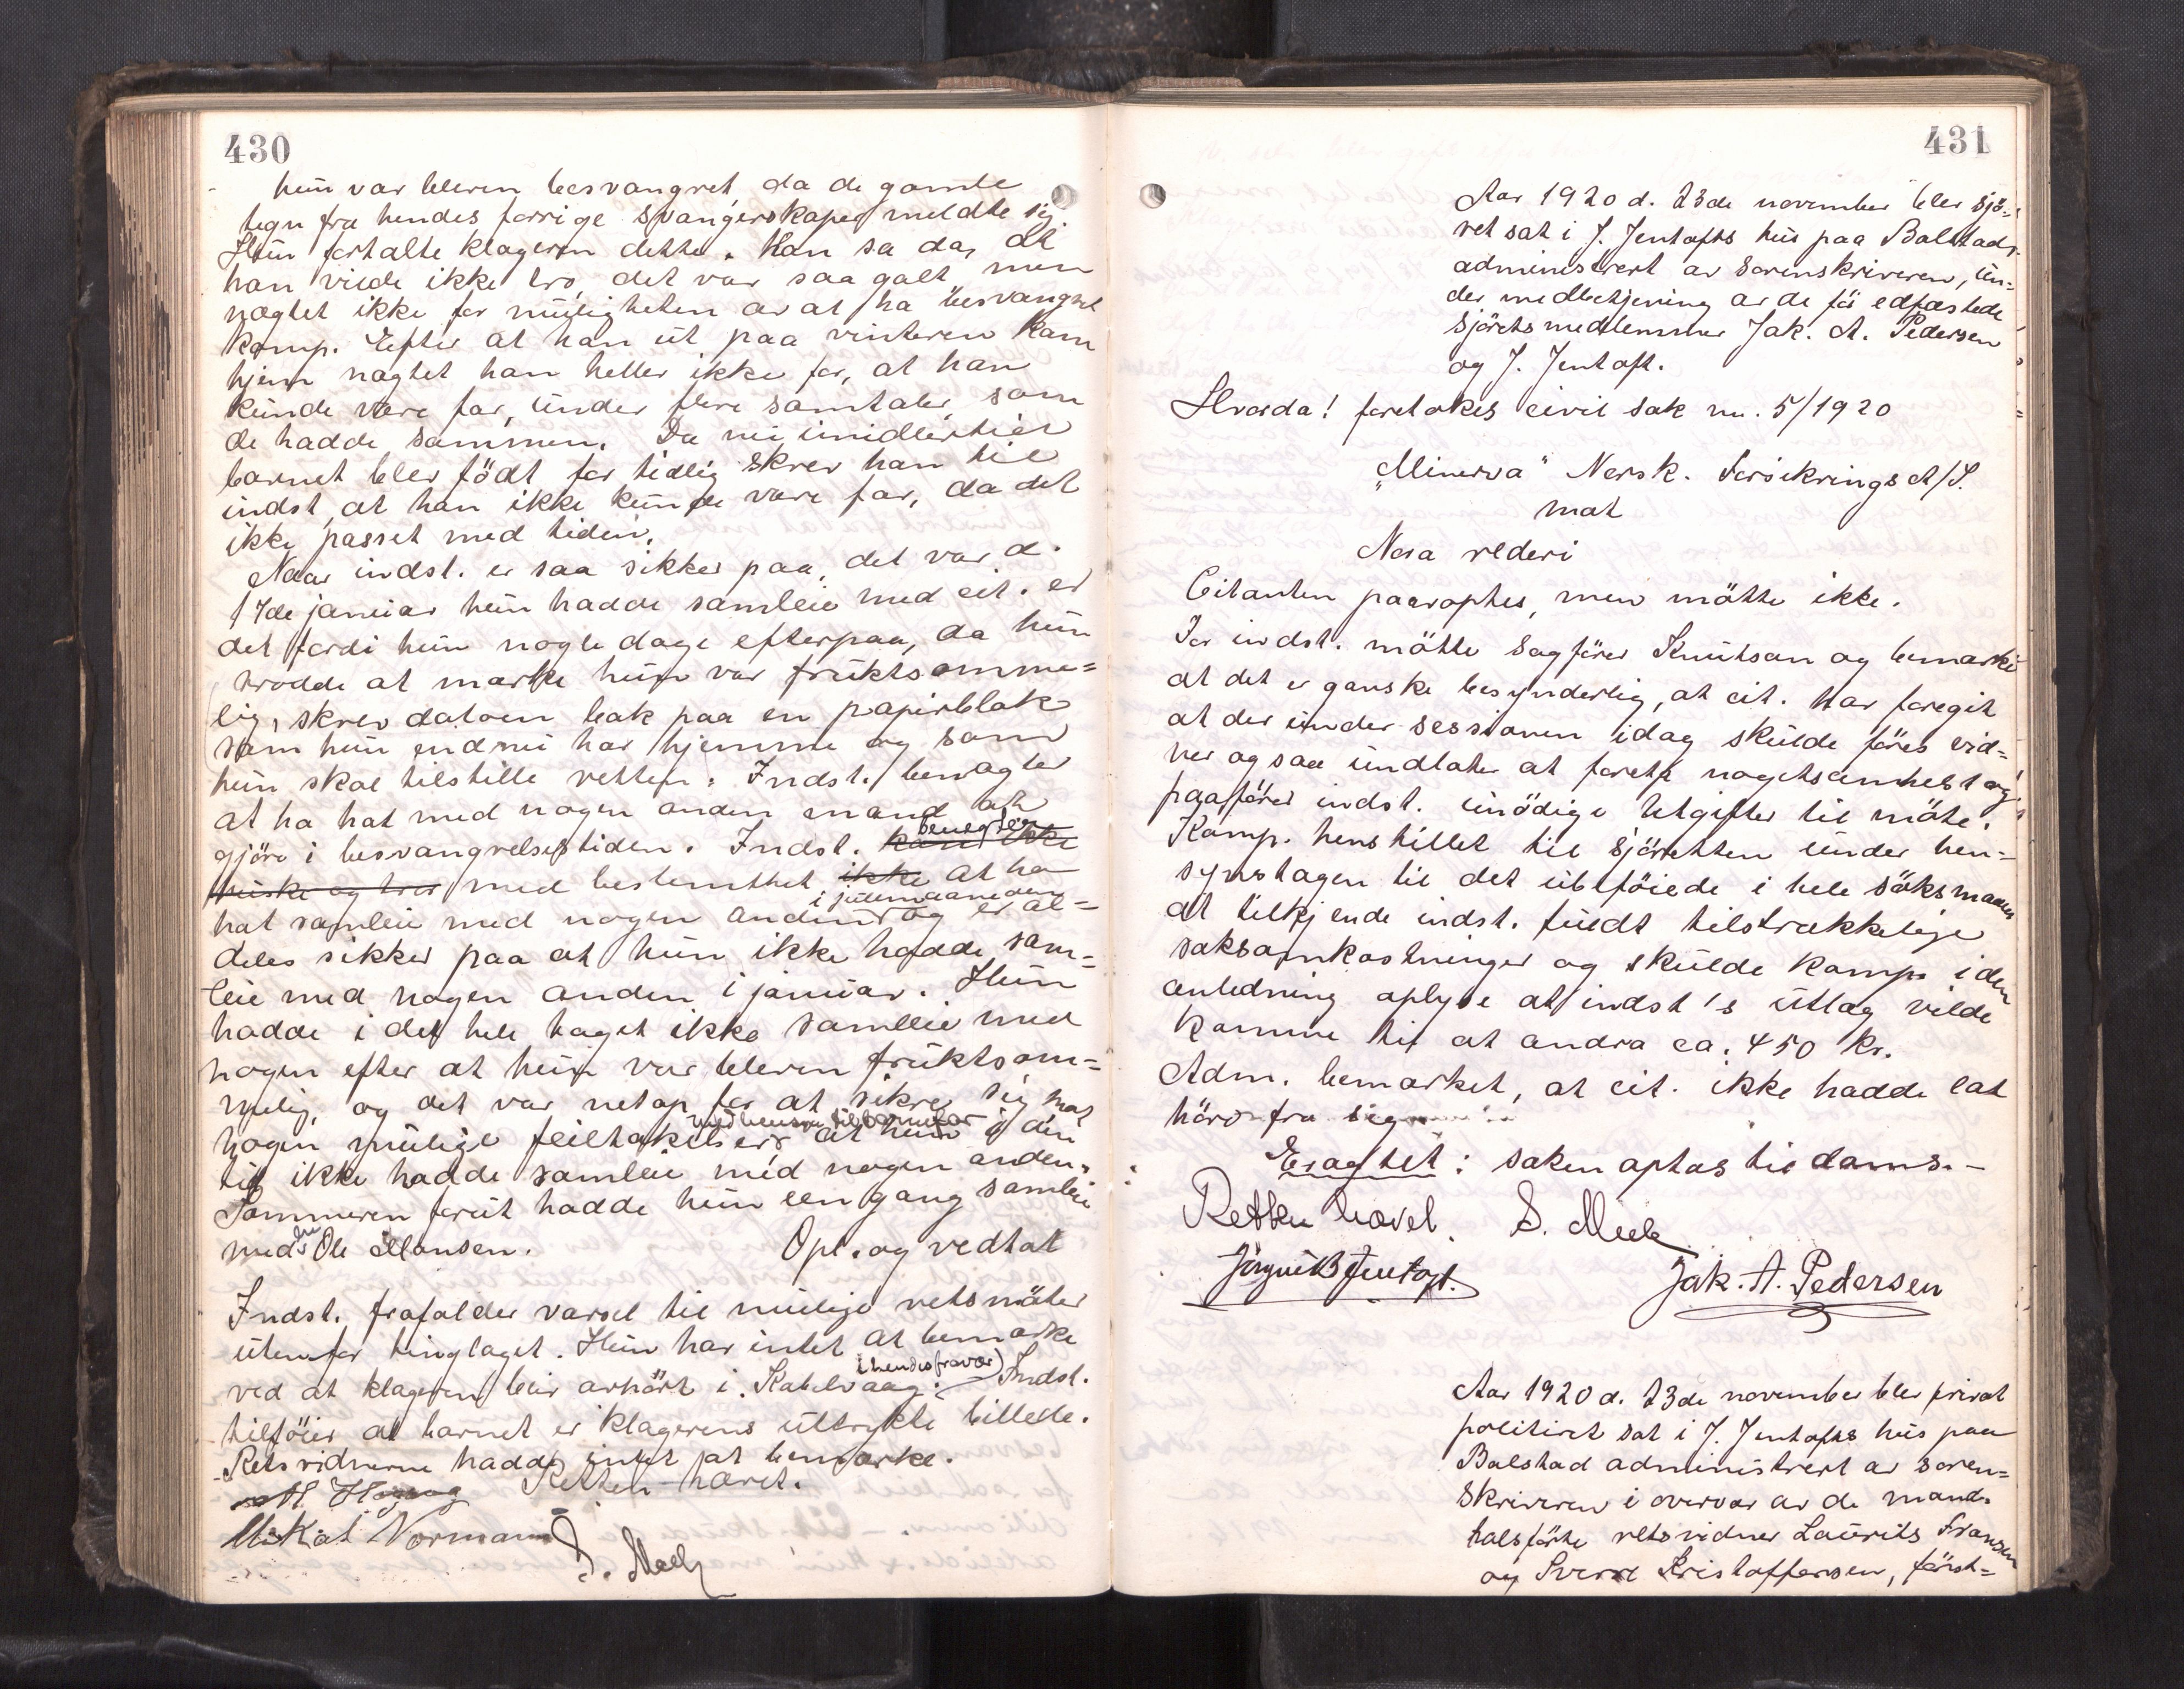 430
hun var bleven besvangret da de gamle
tegn fra hendes forrige svangerskaper meldte sig.
Hun fortalte klageren dette. Han sa da, at
han vilde ikke tro det var saa galt men
nægtet ikke for muligheten av at ha besvangret
komp. Efter at han ut paa vinteren kom
hjem nægtet han heller ikke for, at han
kunde være far, under flere samtaler som
de hadde sammen. Da nu imidlertid
barnet blev födt for tidlig skrev han til
indst, at han ikke kunde være far, da det
ikke passet med tiden.
Naar indst. er saa sikker paa, det var d.
17de januar hun hadde samleie med cit. er
det fordi hun nogle dage efterpaa, da hun
trodde at merke hun var fruktsomme=
lig, skrev datoen bak paa en papirblok
som hun endnu har hjemme og som
hun skal tilstille retten. Indst. benægter
at ha hat med nogen anden mand at
gjöre i besvangrelsestiden. Indst. kan ikke benegter
huske og tror med bestemthet ikke at ha
hat samleie med nogen anden i julemaaneden og er al=
deles sikker paa at hun ikke hadde sam=
leie med nogen anden i januar. Hun
hadde i det hele taget ikke samleie med
nogen efter at hun var bleven fruktsom=
melig, og det var netop for at sikre sig mot
nogen mulige feiltakelser med hensyn til barnefar at hun i den
tid ikke hadde samleie med nogen anden.
Sommeren forut hadde hun een gang samleie
med en Ole Monsen. Opl. og vedtat
Indst. frafalder varsel til mulige retsmöter
utenfor tinglaget. Hun har intet at bemærke
ved at klageren blir avhört i Kabelvaag (i hendes fravær). Indst.
tilföier at barnet er klagerens uttrykte billede.
Retsvidnerne hadde intet at bemærke.
Retten hævet.
Mikal Normann
S. Meek
431
Aar 1920 d. 23de november blev sjö=
ret sat i J. Jentofts hus paa Balstad,
administrert av sorenskriveren, un=
der medbetjening av de för edfæstede
sjöretsmedlemmer Jak. A. Pedersen
og J. Jentoft.
Hvorda! foretokes civil sak nr. 5/1920
"Minerva" Norsk. Forsikrings A/S.
mot
Nora rederi
Citanten paaroptes, men mötte ikke.
For indst. mötte sagförer Knutson og bemerket
at det er ganske besynderlig, at cit. har foregit
at der under sessionen idag skulde föres vid=
ner og saa undlater at foreta nogetsomhelst og
paaförer indst. unödige utgifter til möte.
Komp. henstillet til sjöretten under hen=
syntagen til det utilföiede i hele söksmaalet
at tilkjende indst. fuldt tilstrækkelige
saksomkostninger og skulde komp. i den
anledning oplyse at indst's utlæg vilde
komme til at andra ca. 450 kr.
Adm. bemerket, at cit. ikke hadde lat
höre fra sig
Eragtet: saken optas til doms.-
Retten hævet. S. Meek
Jörgen B Jentoft. Jak. A. Pedersen
Aar 1920 d. 23de november blev privat
politiret sat i J. Jentofts hus paa
Balstad administrert av soren=
skriveren i overvær av de mand=
talsförte retsvidner Laurits Fransen
og Sverre Kristoffersen, först=